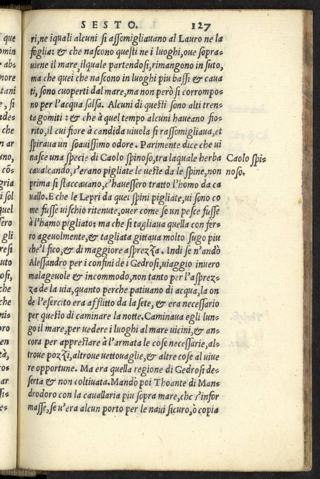 SESTO. 127
ri, ne iquali alcuni si assomigliauano al Lauro ne la
foglia: & che nascono questi ne i luoghi, oue sopra-
uiene il mare, ilquale partendosi, rimangono in suto,
ma che quei che nascono in luoghi piu bassi & caua
ti, sono cuoperti dal mare, ma non però si corrompo-
no per l'acqua salsa. Alcuni di questi sono alti tren-
ta gomiti: & che à quel tempo alcuni haueano fio-
rito, il cui fiore à candida uiuola si rassomigliaua, et
spiraua un soauissimo odore. Parimente dice che ui
nasce una specie di Caolo spinoso, tra laquale herba
Caolo spi
noso.
caualcando, s'erano pigliate le ueste da le spine, non
prima si staccauano, c'hauessero tratto l'homo da ca
uallo. E che le Lepri da quei spini pigliate, ui sono co
me fusse uischio ritenute, ouer come se un pesce fusse
à l'hamo pigliato: ma che si tagliaua quella con fer-
ro ageuolmente, & tagliata gittaua molto sugo piu
che'l fico, & di maggiore asprezza. Indi se n'andò
Alessandro per i confini de i Gedrosi, uiaggio inuero
malageuole & incommodo, non tanto per l'asprez-
za de la uia, quanto perche patiuano di acqua, la on
de l'essercito era afflitto da la sete, & era necessario
per questo di caminare la notte. Caminaua egli lun-
go il mare, per uedere i luoghi al mare uicini, & an-
cora per apprestare à l'armata le cose necessarie, al-
troue pozzi, altroue uettouaglie, & altre cose al uiue
re opportune. Ma era quella regione di Gedrosi de-
serta & non coltiuata. Mandò poi Thoante di Man-
drodoro con la cauallaria piu sopra mare, che s'infor
masse, se u'era alcun porto per le naui sicuro, ò copia